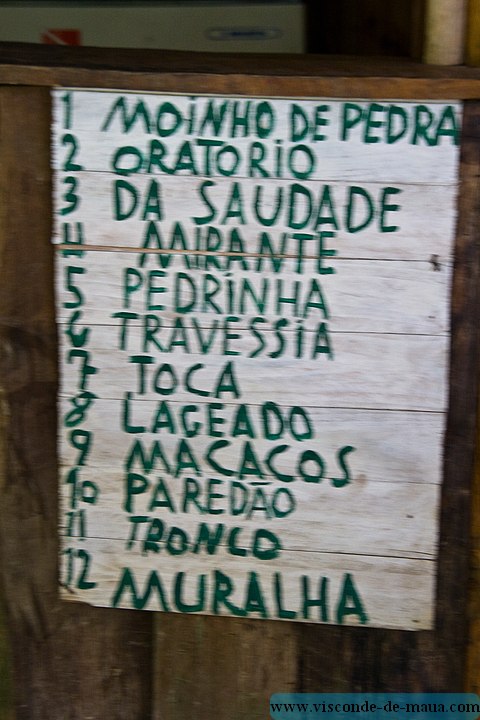 1 MOINHO DE PEDRA
2 ORATORIO
3 DA SAUDADE
4 MIRANTE
5 PEDRINHA
6 TRAVESSIA
7 TOCA
8 LAGEADO
9 MACACOS
10 PAREDÃO
11 TRONCO
12 MURALHA
www.visconde-de-maua.com